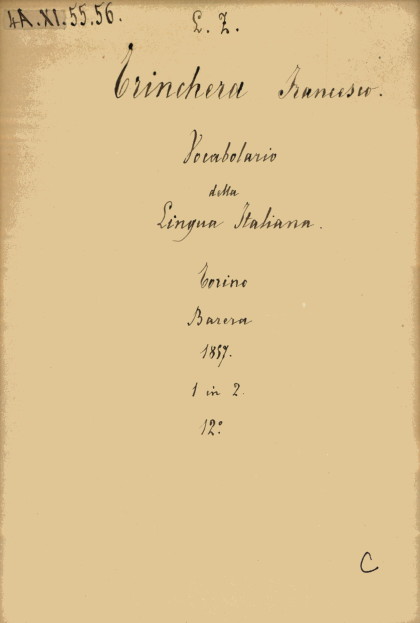 4A.XI.55.56.
L. Z.
Trinchera Francesco.
Vocabolario
della
Lingua Italiana.
Torino
Barera
1857.
1 in 2.
12º
C